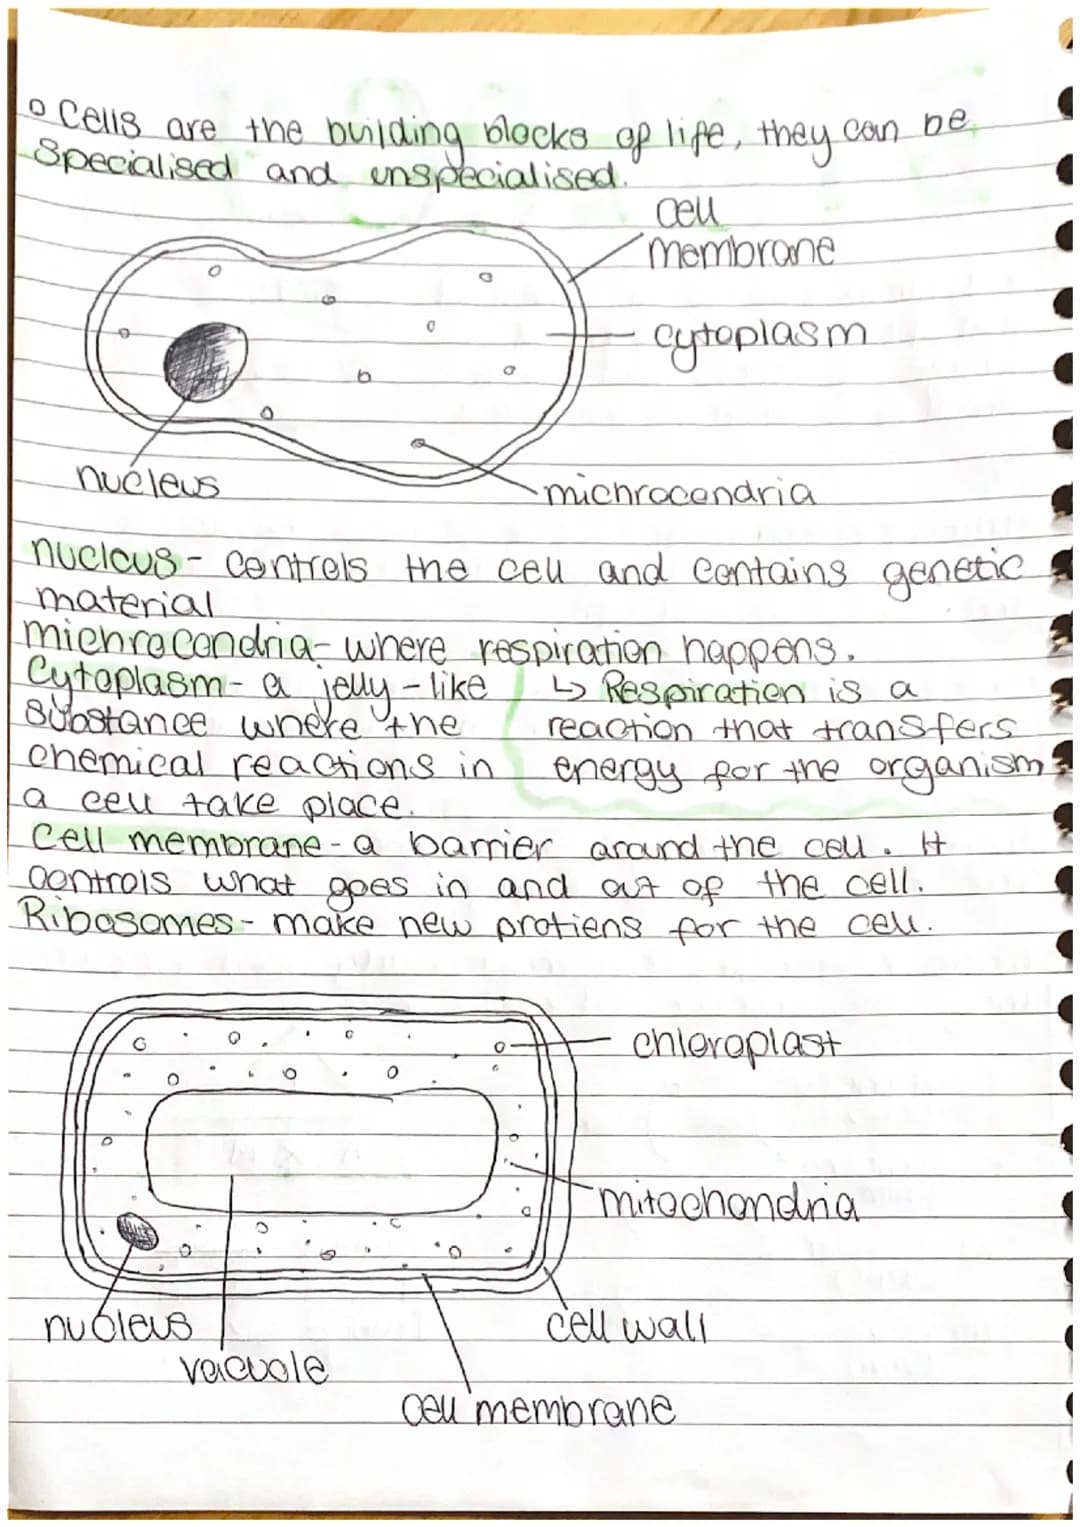 o Cells are the building blocks of life, they can be
Specialised and unspecialised.
cell
membrane
cytoplasm
nucleus
michrocondria
nucleus - controls the cell and contains genetic
material
michrocondria - where respiration happens.
Cytoplasm - a jelly-like
substance where the
chemical reactions in
a cell take place.
↳ Respiration is a
reaction that transfers
energy for the organism
Cell membrane - a barrier around the cell. It
controls what goes in and out of the cell.
Ribosomes - make new protiens for the cell.
chloroplast
mitochondria
nucleus
cell wall
vacuole
cell membrane